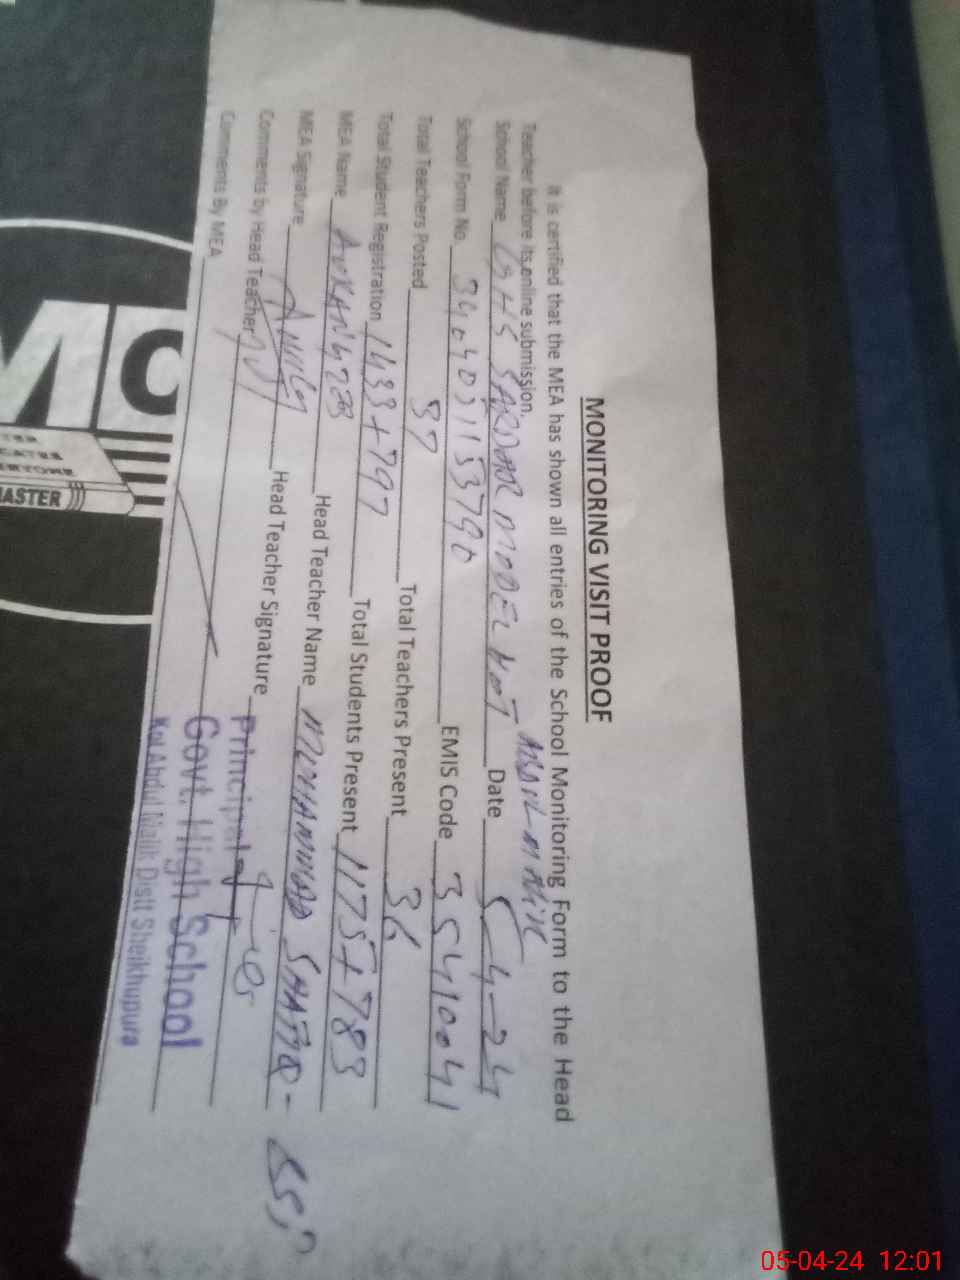 MONITORING VISIT PROOF
It is certified that the MEA has shown all entries of the School Monitoring Form to the Head
Teacher before its online submission.
School Name GHS SARDAR MODEL KOT ABDUL MALIK Date 5-4-24
School Form No. EMIS Code 35410041
Total Teachers Posted 37 Total Teachers Present 36
Total Student Registration 1433+797 Total Students Present 1175+783
MEA Name Head Teacher Name MUHAMMAD
MEA Signature Head Teacher Signature
Comments by Head Teacher
Comments By MEA
Principal
Govt. High School
Kot Abdul Malik Distt Sheikhupura
MASTER
05-04-24 12:01